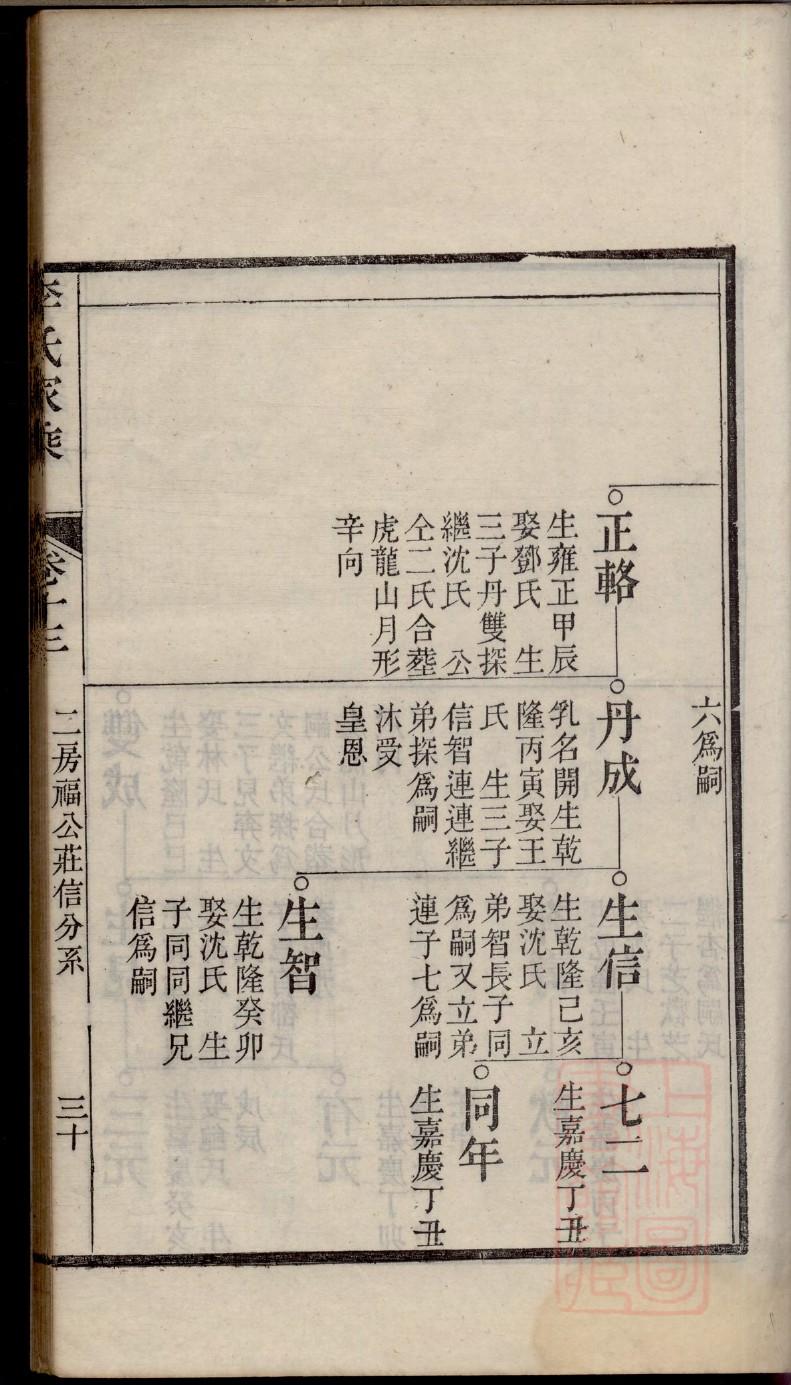 六爲嗣
正輅
生雍正甲辰
娶鄧氏　生
三子丹雙探
繼沈氏　公
仝二氏合塟
虎龍山月形
辛向
丹成
乳名開生乾
隆丙寅娶王
氏　生三子
信智連連繼
弟探爲嗣
沐受
皇恩
生信
生乾隆己亥
娶沈氏　立
弟智長子同
爲嗣又立弟
連子七爲嗣
生智
生乾隆癸卯
娶沈氏　生
子同同繼兄
信爲嗣
七二
生嘉慶丁丑
同年
生嘉慶丁丑
李氏家乘
卷十三
二房福公莊信分系
三十